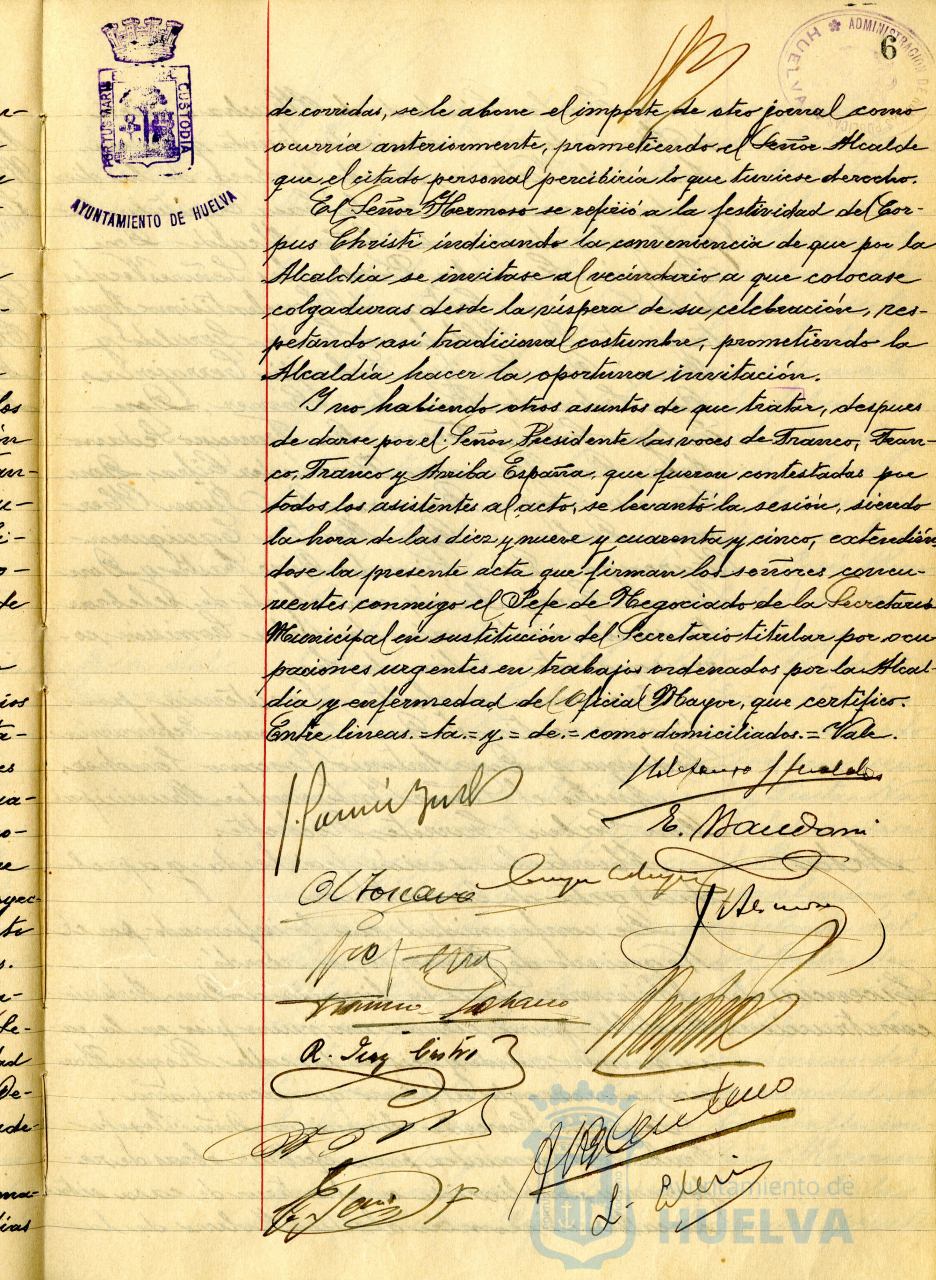 6
ADMINISTRACIÓN DE
HUELVA
PORTUS MARIS
CUSTODIA
AYUNTAMIENTO DE HUELVA
de corridas, se le abone el importe de otro jornal como
ocurria anteriormente, prometiendo el Señor Alcalde
que el citado personal percibiría lo que tuviese derecho.
El Señor Hermoso se refirió a la festividad del Cor-
pus Christi indicando la conveniencia de que por la
Alcaldía se invitase al vecindario a que colocase
colgaduras desde la víspera de su celebración, res-
petando así tradicional costumbre, prometiendo la
Alcaldía hacer la oportuna invitación.
Y no habiendo otros asuntos de que tratar, despues
de darse por el Señor Presidente las voces de Franco, Fran-
co, Franco y Arriba España, que fueron contestadas por
todos los asistentes al acto, se levantó la sesión, siendo
la hora de las diez y nueve y cuarenta y cinco, extendién
dose la presente acta que firman los señores concu-
rrentes conmigo el Jefe de Negociado de la Secretaría
Municipal en sustitución del Secretario titular por ocu
paciones urgentes en trabajos ordenados por la Alcal-
día y enfermedad del Oficial Mayor, que certifico.
Entre lineas.=ta.=y=de.=como domiciliados.=Vale.
E.
R. Castro
Ayuntamiento de
HUELVA